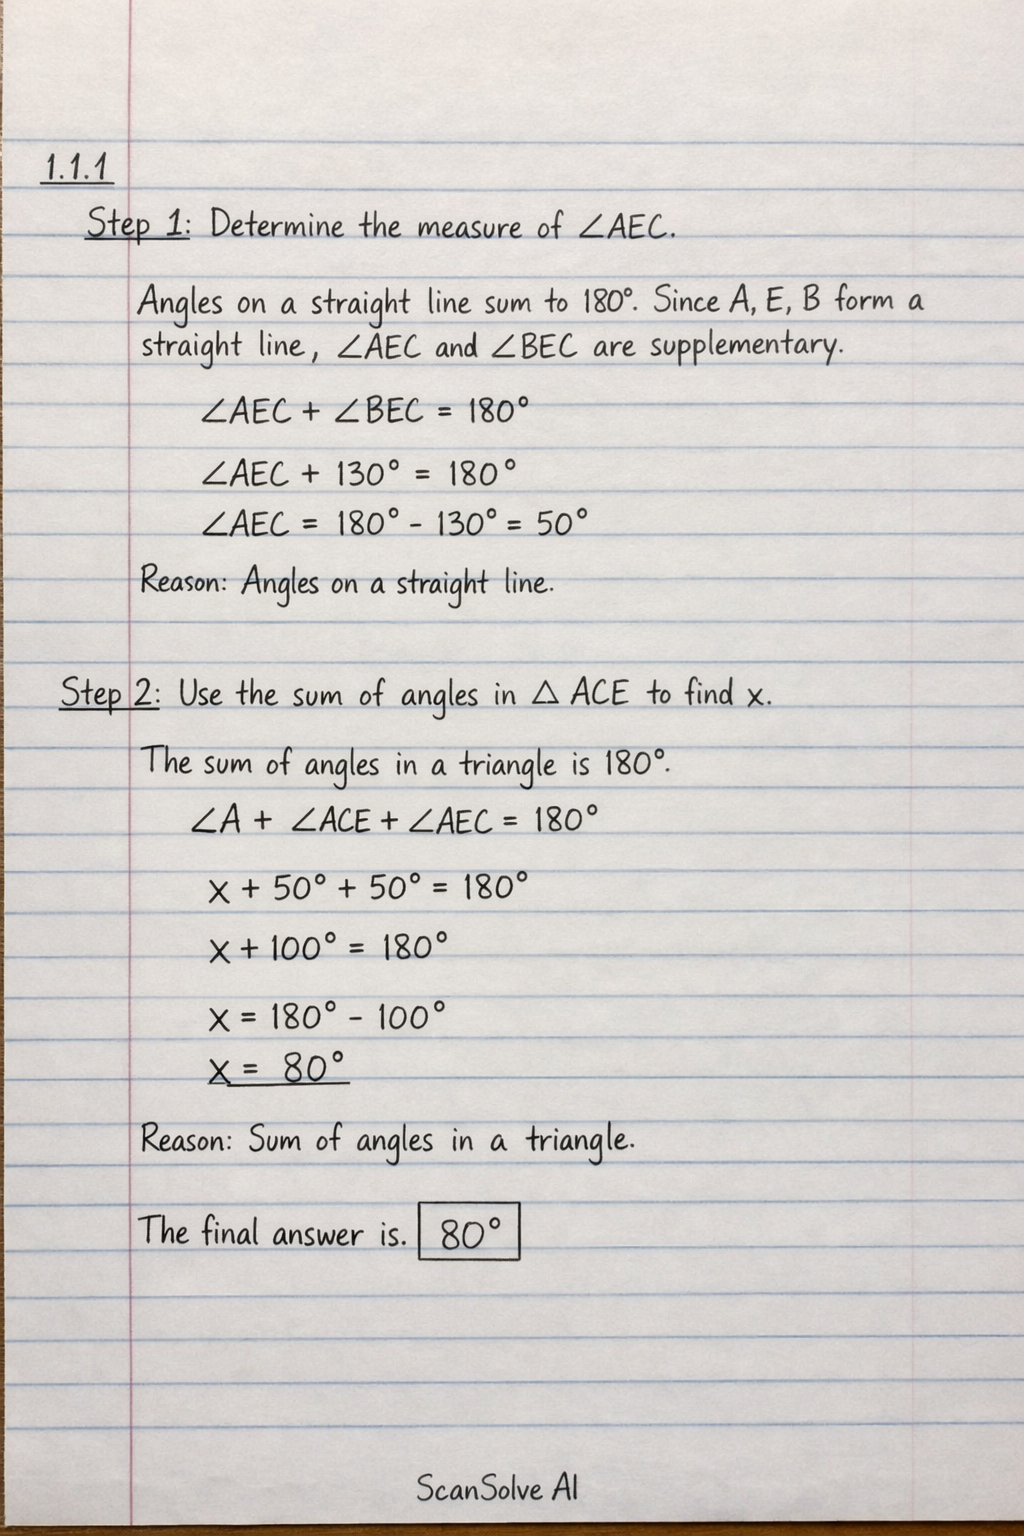 1.1.1
Step 1: Determine the measure of ∠AEC.
Angles on a straight line sum to 180°. Since A, E, B form a
straight line, ∠AEC and ∠BEC are supplementary.
∠AEC + ∠BEC = 180°
∠AEC + 130° = 180°
∠AEC = 180° - 130° = 50°
Reason: Angles on a straight line.
Step 2: Use the sum of angles in △ ACE to find x.
The sum of angles in a triangle is 180°.
∠A + ∠ACE + ∠AEC = 180°
x + 50° + 50° = 180°
x + 100° = 180°
x = 180° - 100°
x = 80°
Reason: Sum of angles in a triangle.
The final answer is. 80°
ScanSolve AI